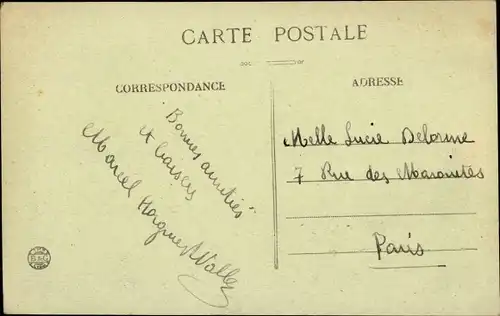 CARTE POSTALE
CORRESPONDANCE
ADRESSE
Bonnes amitiés
et baisers
Marcel
Melle Lucie Delorme
7 Rue des Maronites
Paris